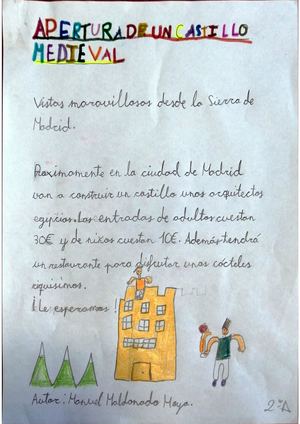 APERTURA DE UN CASTILLO
MEDIEVAL
Vistas maravillosas desde la Sierra de
Madrid.
Proximamente en la ciudad de Madrid
van a construir un castillo unos arquitectos
egipcios. Las entradas de adultos cuestan
30€ y de niños cuestan 10€. Además tendrá
un restaurante para disfrutar unos cócteles
riquisimos.
¡Le esperamos!
Autor: Manuel Maldonado Moya.
2ºA